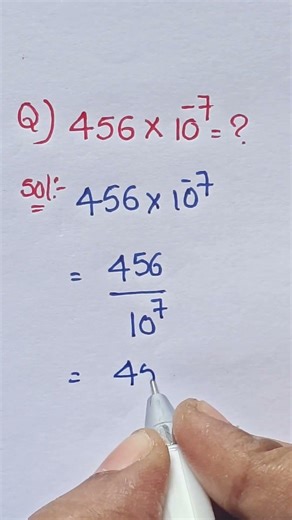 Q) 456 × 10⁻⁷ = ?
Sol:- 456 × 10⁻⁷
= 456
10⁷
= 45